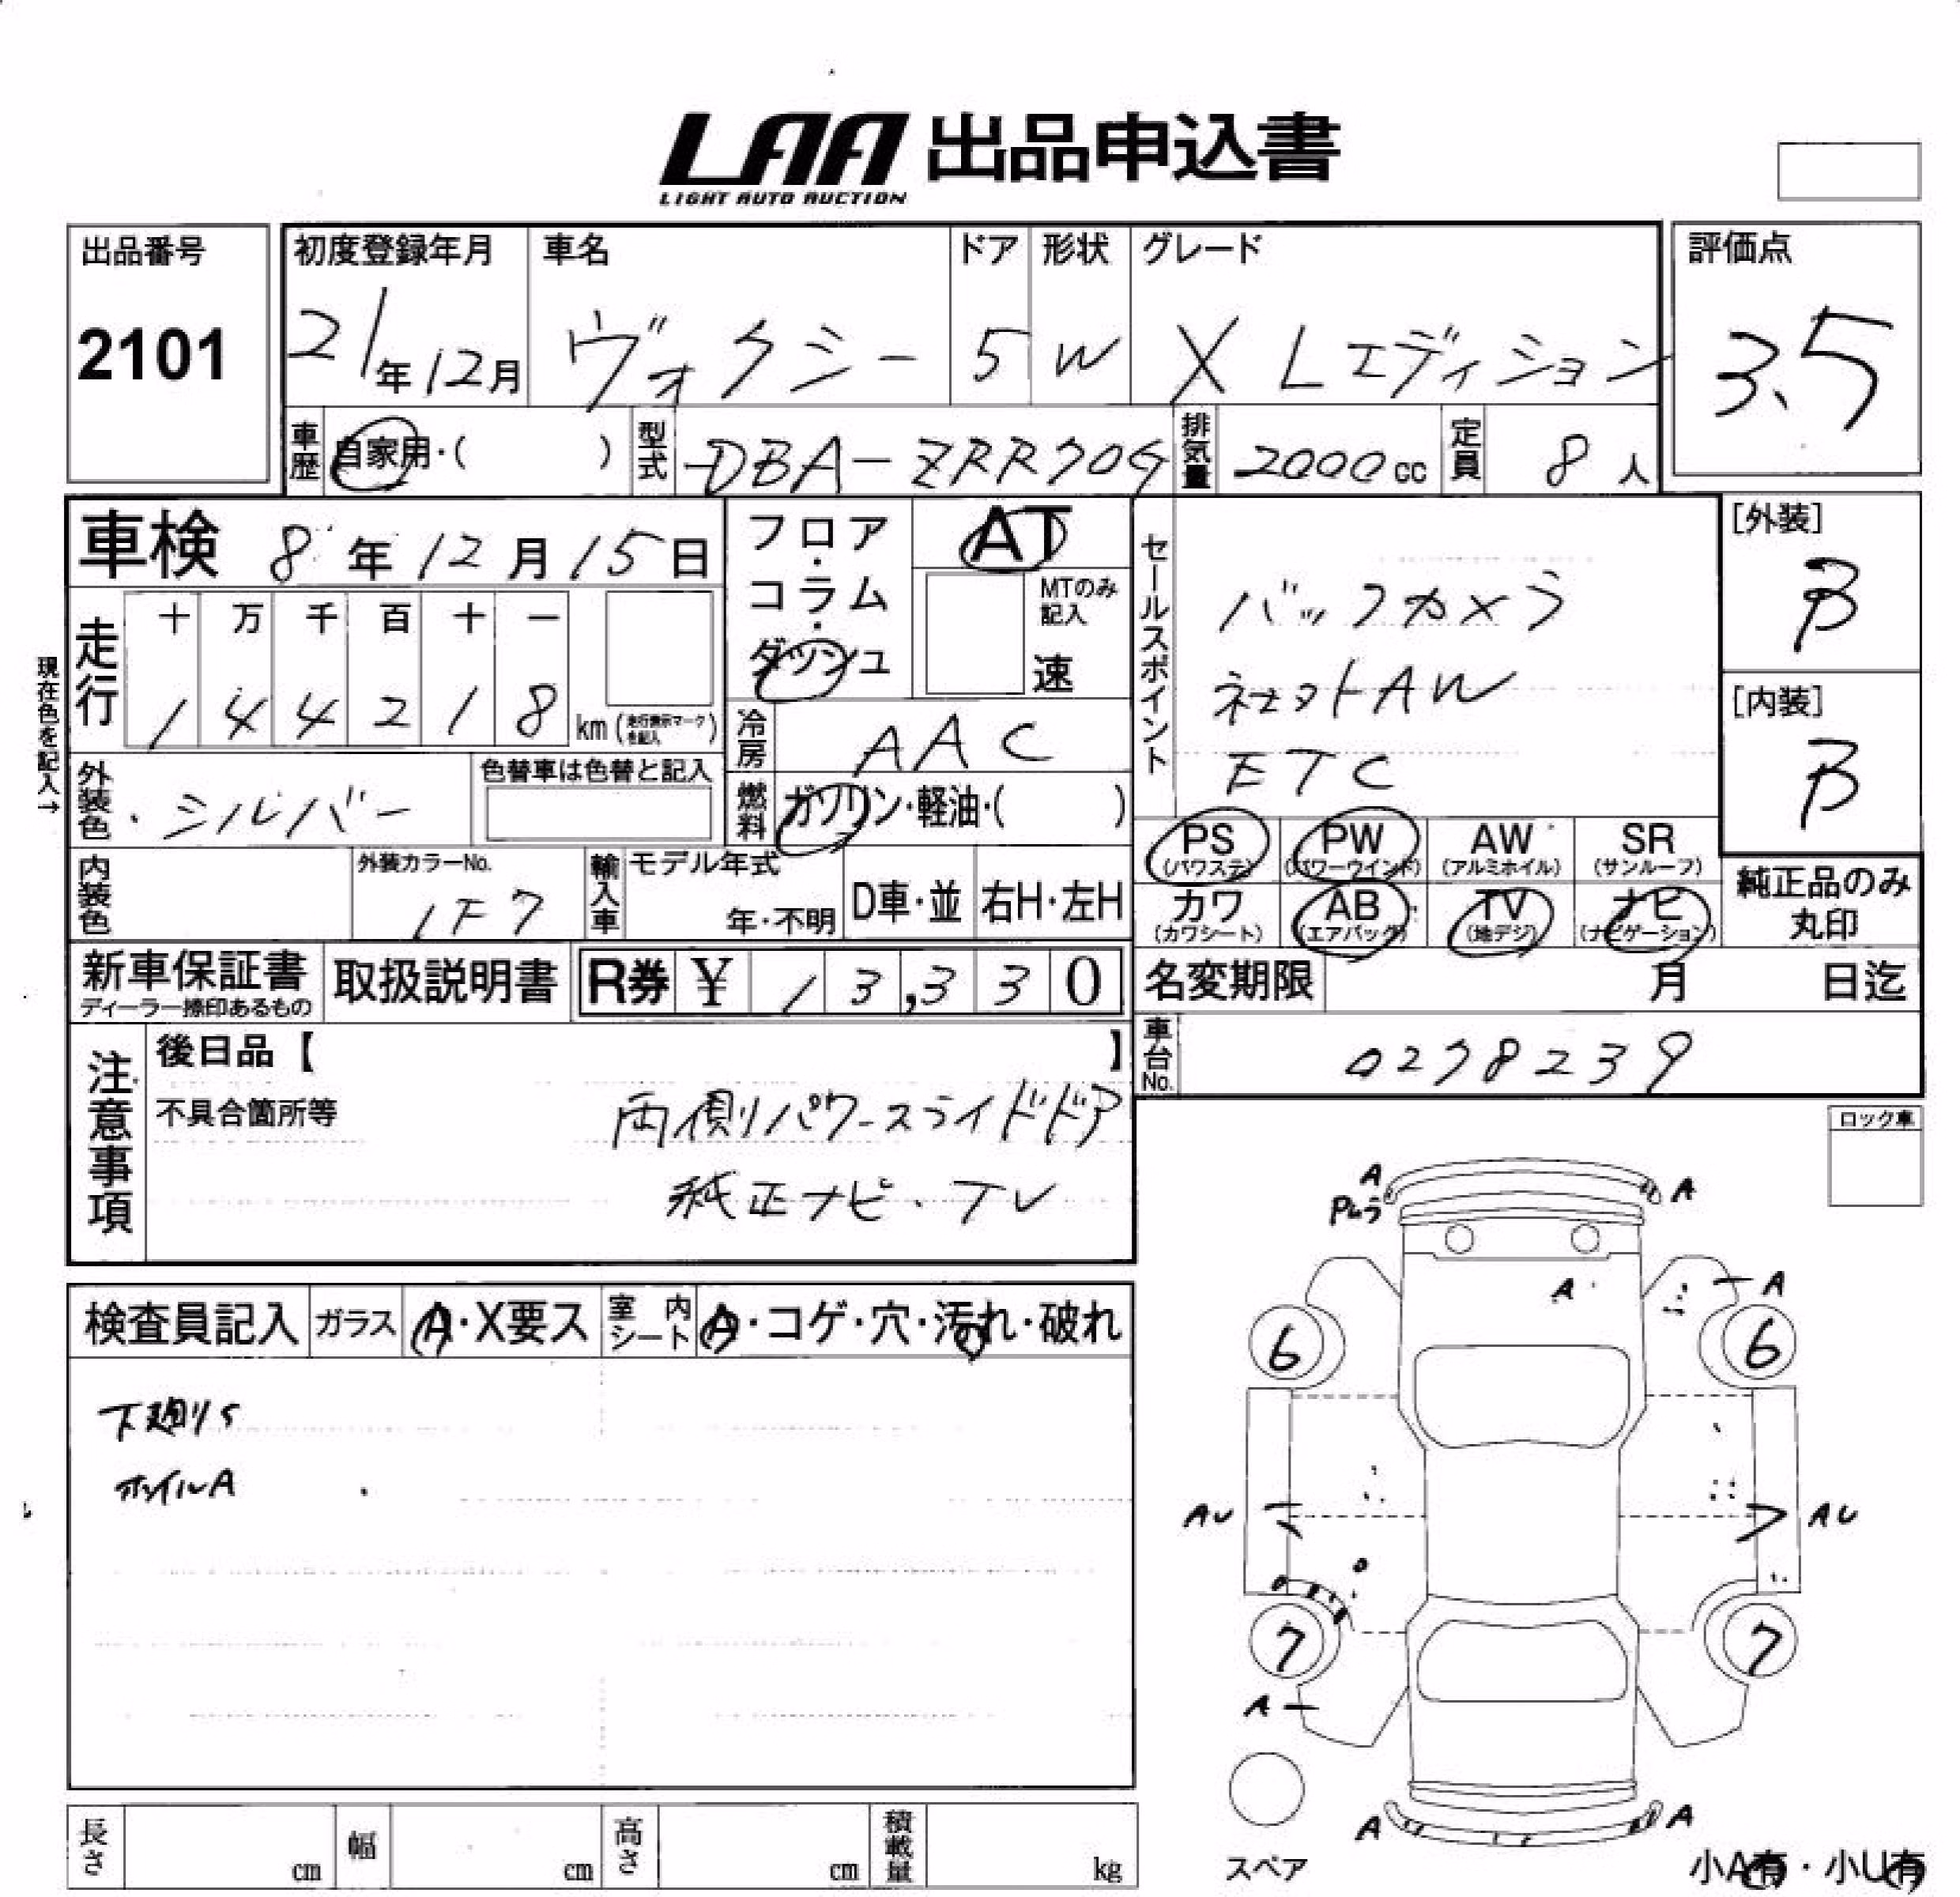 LAA 出品申込書
LIGHT AUTO AUCTION
出品番号
2101
初度登録年月
21年12月
車名
ヴォクシー
ドア
5
形状
W
グレード
X Lエディション
評価点
3.5
車歴
自家用・( )
型式
DBA-ZRR70G
排気量
2000cc
定員
8人
車検 8年12月15日
現在色を記入→
走行
十 万 千 百 十 一
1 4 4 2 1 8 km(走行表示マークを記入)
フロア・コラム・ダッシュ
AT
MTのみ記入
速
冷房
AAC
燃料
ガソリン・軽油・( )
外装色
シルバー
色替車は色替と記入
内装色
外装カラーNo.
1F7
輸入車
モデル年式
年・不明
D車・並
右H・左H
セールスポイント
バックカメラ
ETC
[外装]
B
[内装]
B
PS
(パワステ)
PW
(パワーウインド)
AW
(アルミホイル)
SR
(サンルーフ)
カワ
(カワシート)
AB
(エアバック)
TV
(地デジ)
ナビ
(ナビゲーション)
純正品のみ
丸印
新車保証書
ディーラー捺印あるもの
取扱説明書
R券 ¥ 13,330
名変期限 月 日迄
車台No.
0298239
注意事項
後日品【 】
不具合箇所等
両側パワースライドドア
純正ナビ・TV
ロック車
検査員記入
ガラス
A・X要ス
室内シート
A・コゲ・穴・汚れ・破れ
下廻りS
ホイルA
A
A
A
A
6
6
AU
AU
7
7
A
A
A
スペア
小A有・小U有
長さ cm
幅 cm
高さ cm
積載量 kg